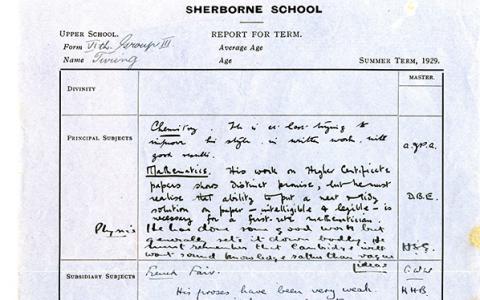 SHERBORNE SCHOOL
UPPER SCHOOL. REPORT FOR TERM.
Form VIth. Group III Average Age
Name Turing Age SUMMER TERM, 1929.
MASTER.
DIVINITY
PRINCIPAL SUBJECTS
Chemistry. He is at last trying to
improve his style in written work with
good results. A.J.P.A.
Mathematics. His work on Higher Certificate
papers shows distinct promise, but he must
realise that ability to put a neat & tidy
solution on paper – intelligible & legible – is
necessary for a first-rate mathematician. D.B.E.
Physics He has done some good work but
generally sets it down badly. He
must remember that Cambridge will
want sound knowledge rather than vague
ideas
SUBSIDIARY SUBJECTS
French Fair.
His proses have been very weak. H.H.B.